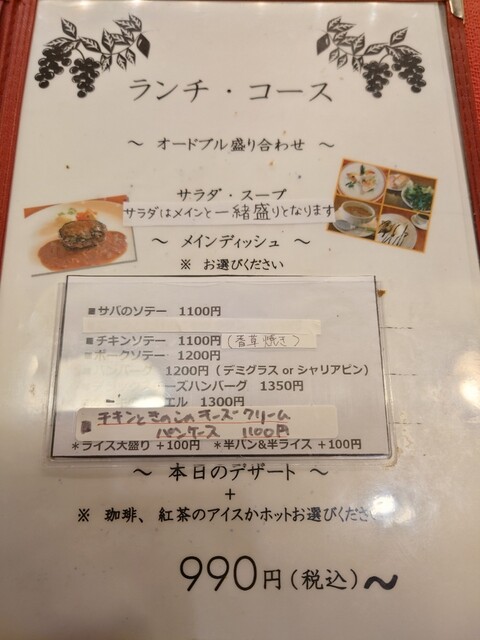 ランチ・コース
～ オードブル盛り合わせ ～
サラダ・スープ
サラダはメインと一緒盛りとなります
～ メインディッシュ ～
※ お選びください
■サバのソテー 1100円
■チキンソテー 1100円(香草焼き)
■ポークソテー 1200円
1200円(デミグラス or シャリアピン)
ーズハンバーグ 1350円
エル 1300円
■チキンときのこのチーズクリーム
パンケース 1100円
*ライス大盛り +100円 *半パン&半ライス +100円
～ 本日のデザート ～
+
※ 珈琲、紅茶のアイスかホットお選びくださ
990円(税込)～